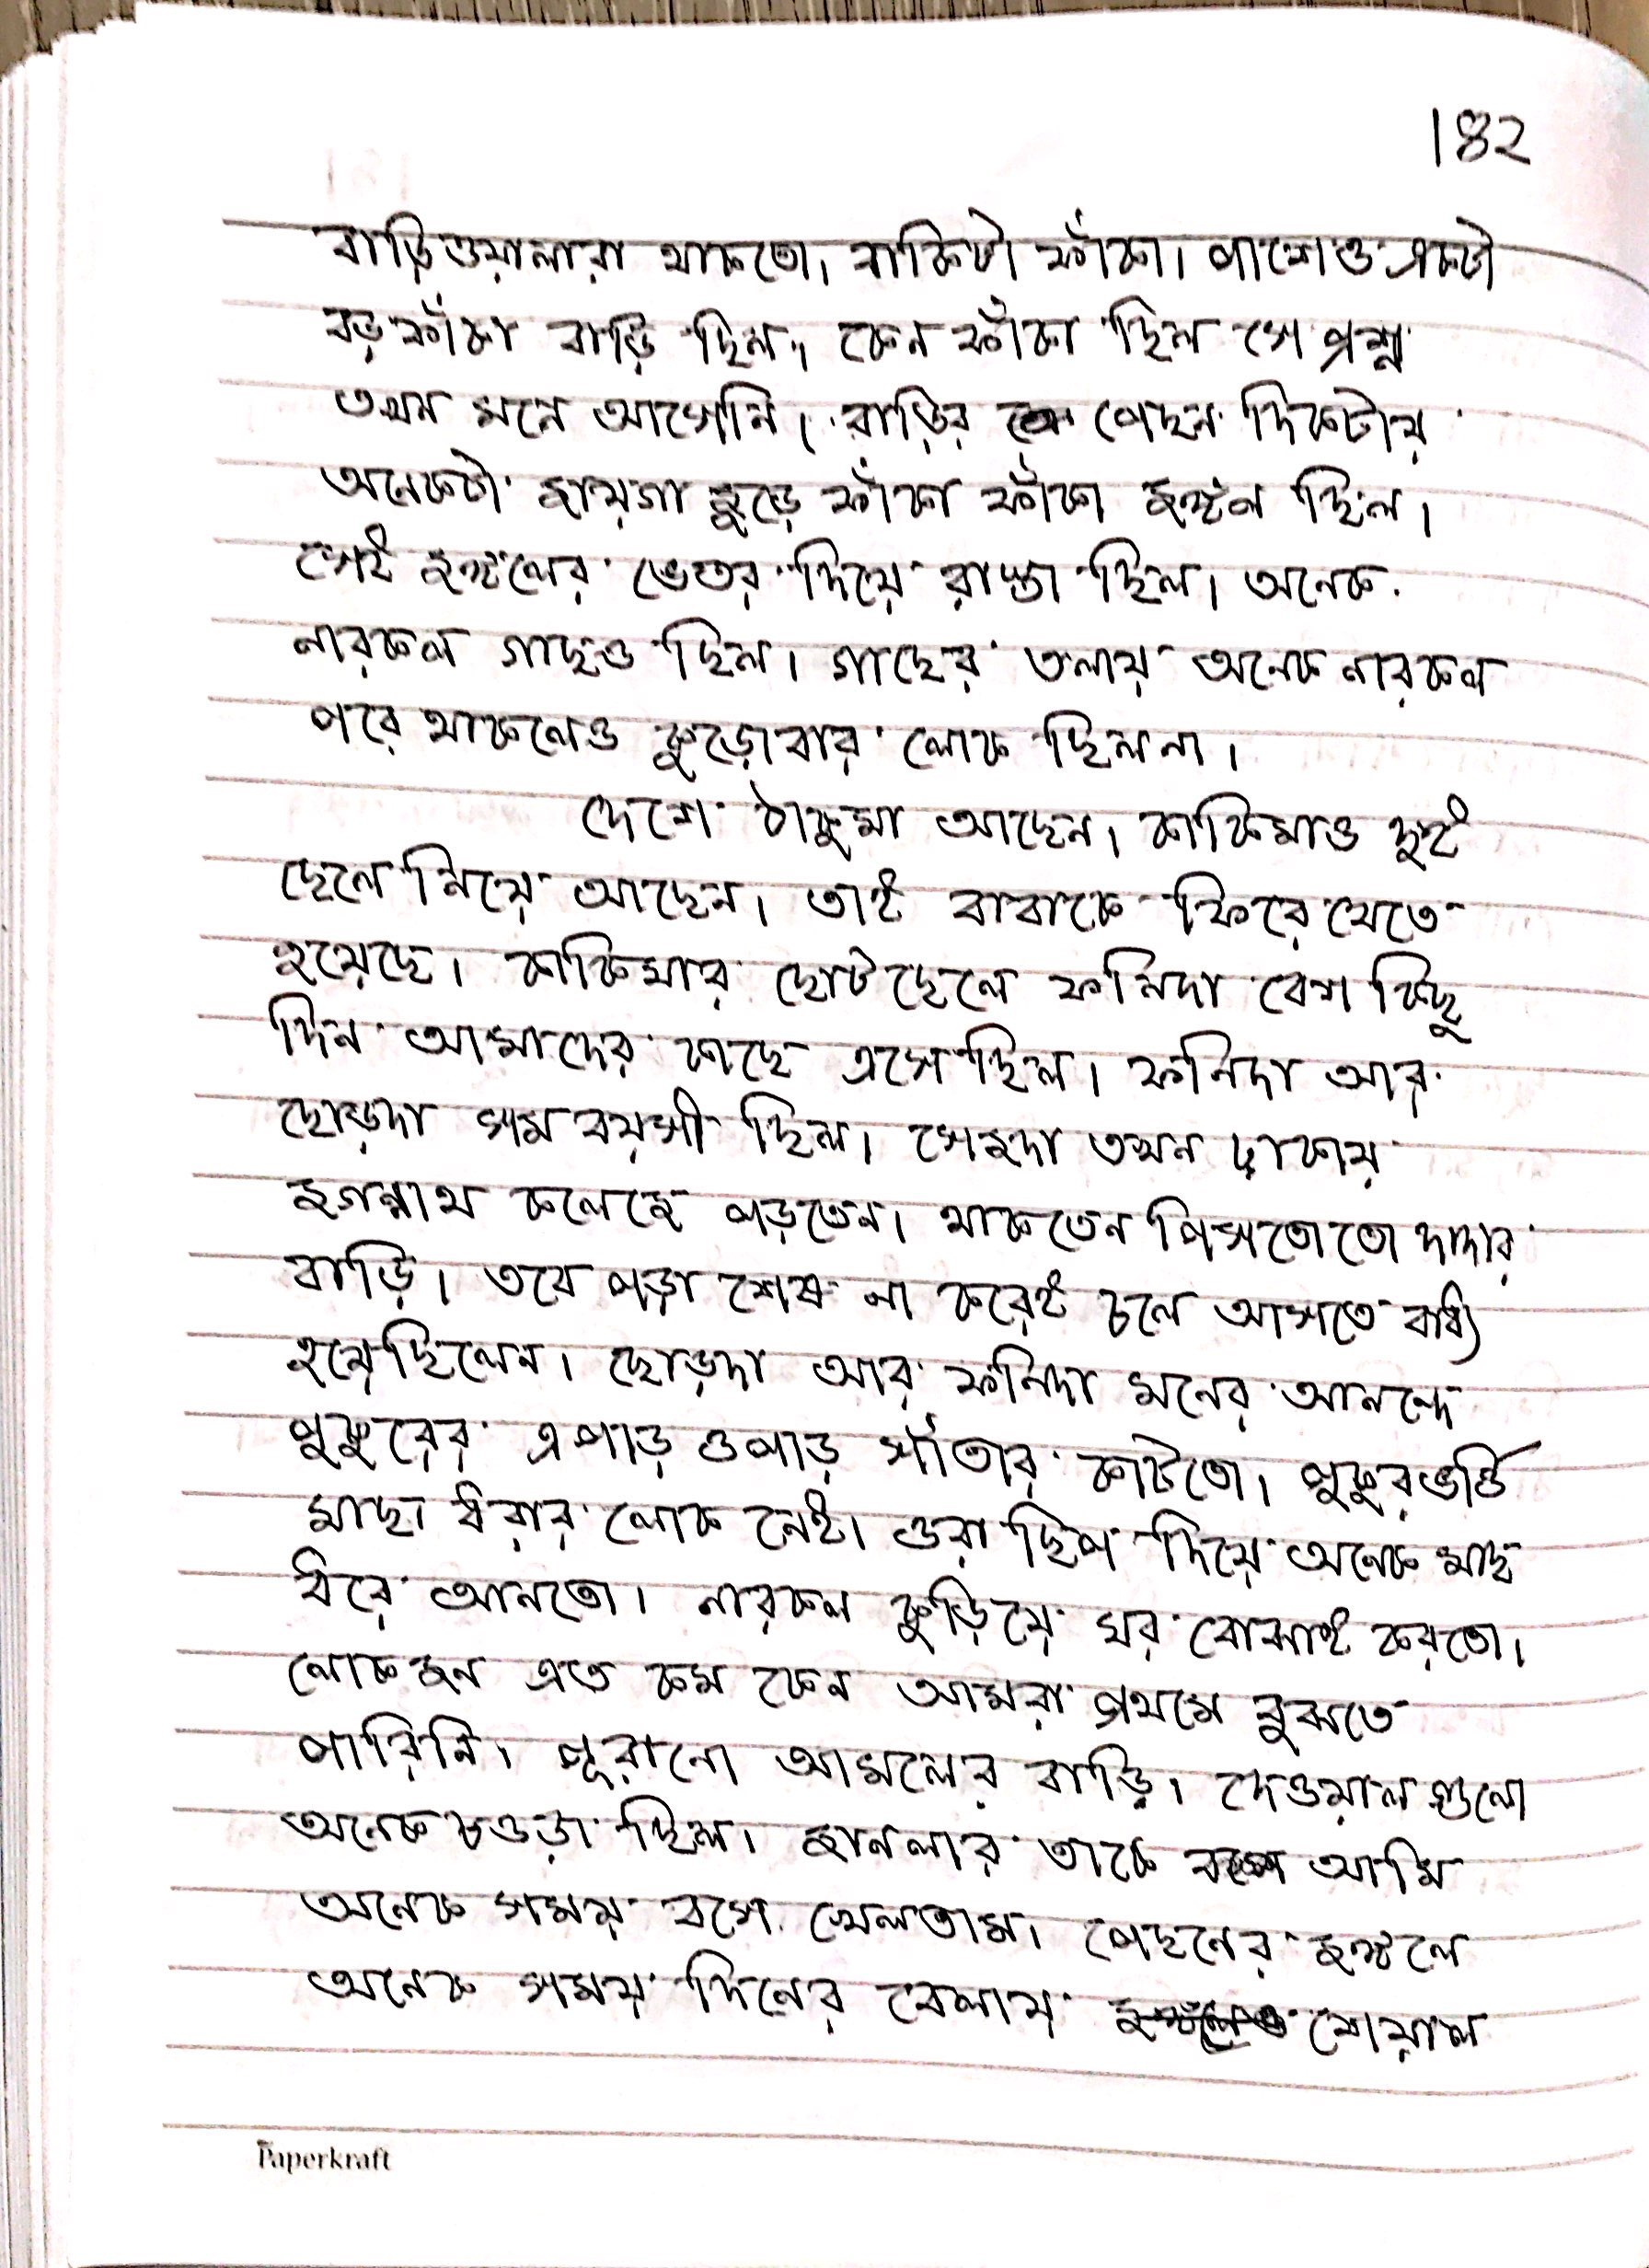 ১৪২
বাড়িওয়ালারা থাকতো। বাকিটা ফাঁকা। পাশেও একটা
বড় ফাঁকা বাড়ি ছিল, কেন ফাঁকা ছিল সে প্রশ্ন
তখন মনে আসেনি। বাড়ির পেছন দিকটায়
অনেকটা জায়গা জুড়ে ফাঁকা ফাঁকা জঙ্গল ছিল।
সেই জঙ্গলের ভেতর দিয়ে রাস্তা ছিল। অনেক
নারকল গাছও ছিল। গাছের তলায় অনেক নারকল
পরে থাকলেও কুড়োবার লোক ছিলনা।
দেশে ঠাকুমা আছেন। কাকিমাও দুই
ছেলে নিয়ে আছেন। তাই বাবাকে ফিরে যেতে
হয়েছে। কাকিমার ছোটছেলে ফনিদা বেশ কিছু
দিন আমাদের কাছে এসেছিল। ফনিদা আর
ছোড়দা সমবয়সী ছিল। সেজদা তখন ঢাকায়
জগন্নাথ কলেজে পড়তেন। থাকতেন পিসতোতো দাদার
বাড়ি। তবে পড়া শেষ না করেই চলে আসতে বাধ্য
হয়েছিলেন। ছোড়দা আর ফনিদা মনের আনন্দে
পুকুরের এপাড় ওপাড় সাঁতার কাটতো। পুকুরভর্তি
মাছ। ধরার লোক নেই। ওরা ছিপ দিয়ে অনেক মাছ
ধরে আনতো। নারকল কুড়িয়ে ঘর বোঝাই করতো।
লোকজন এত কম কেন আমরা প্রথমে বুঝতে
পারিনি। পুরানো আমলের বাড়ি। দেওয়াল গুলো
অনেক চওড়া ছিল। জানলার তাকে আমি
অনেক সময় বসে খেলতাম। পেছনের জঙ্গলে
অনেক সময় দিনের বেলায় শেয়াল
Paperkraft